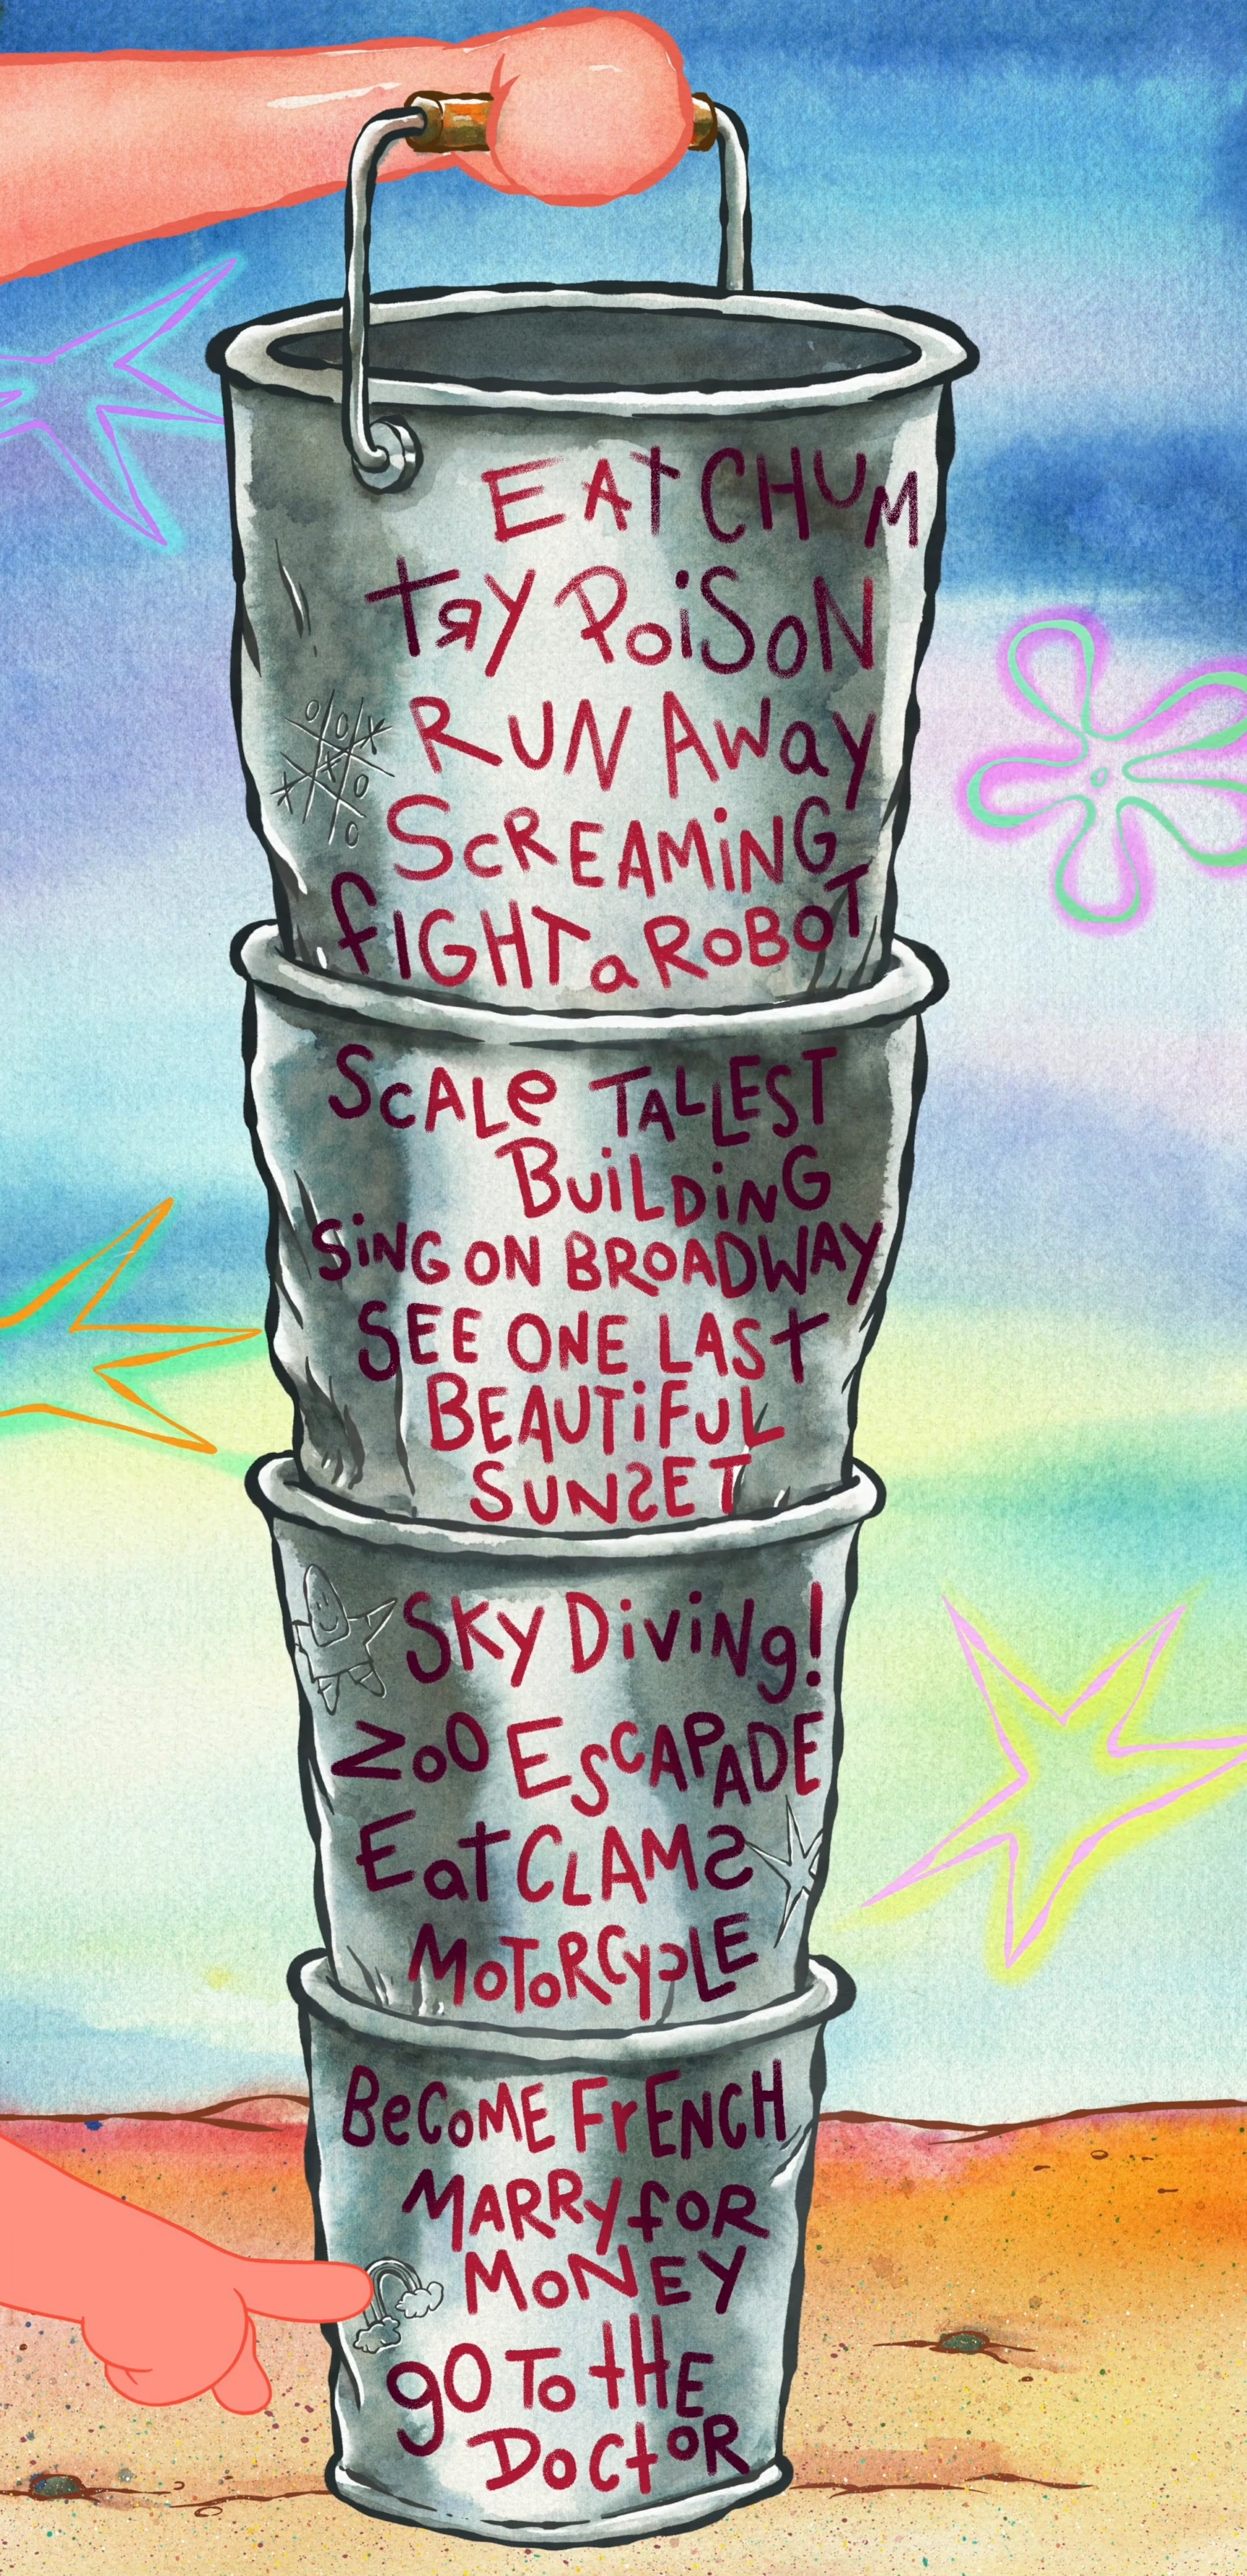 EAT CHUM
TRY POiSON
RUN AWay
SCREAMiNG
fIGHT a ROBOT
SCALe TALLEST
BUiLDiNG
SiNG ON BROADWAY
SEE ONE LAST
BEAUTiFUL
SUNSET
SKY DiViNg!
ZoO ESCAPADE
EaT CLAMS
MOTORCyCLE
BeCoME FrENCH
MARRy fOR
MoNEY
gO To tHE
DoCtOR